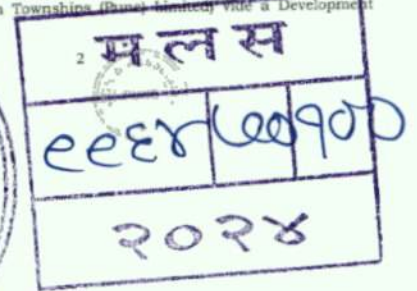 Townships (Pune) Limited) vide a Development
2 मलस
९९६४ ७० १००
२०२४